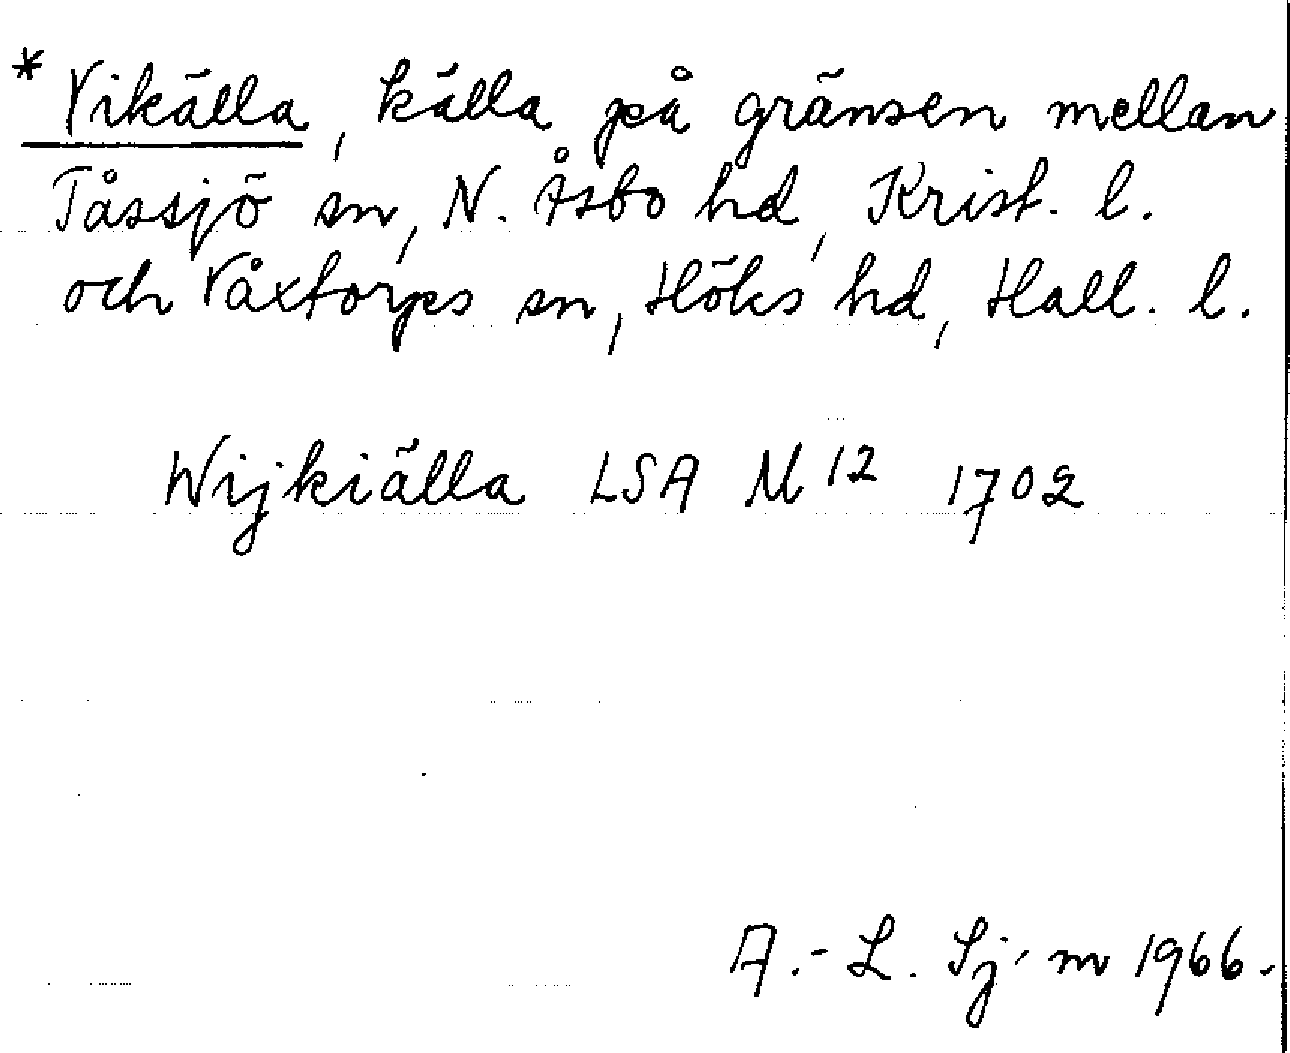 * Vikälla, källa på gränsen mellan
Tåssjö sn, N. Åsbo hd, Krist. l.
och Våxtorps sn, Höks hd, Hall. l.
Wijkiälla LSA M 12 1702
A.-L. Sj-m 1966.